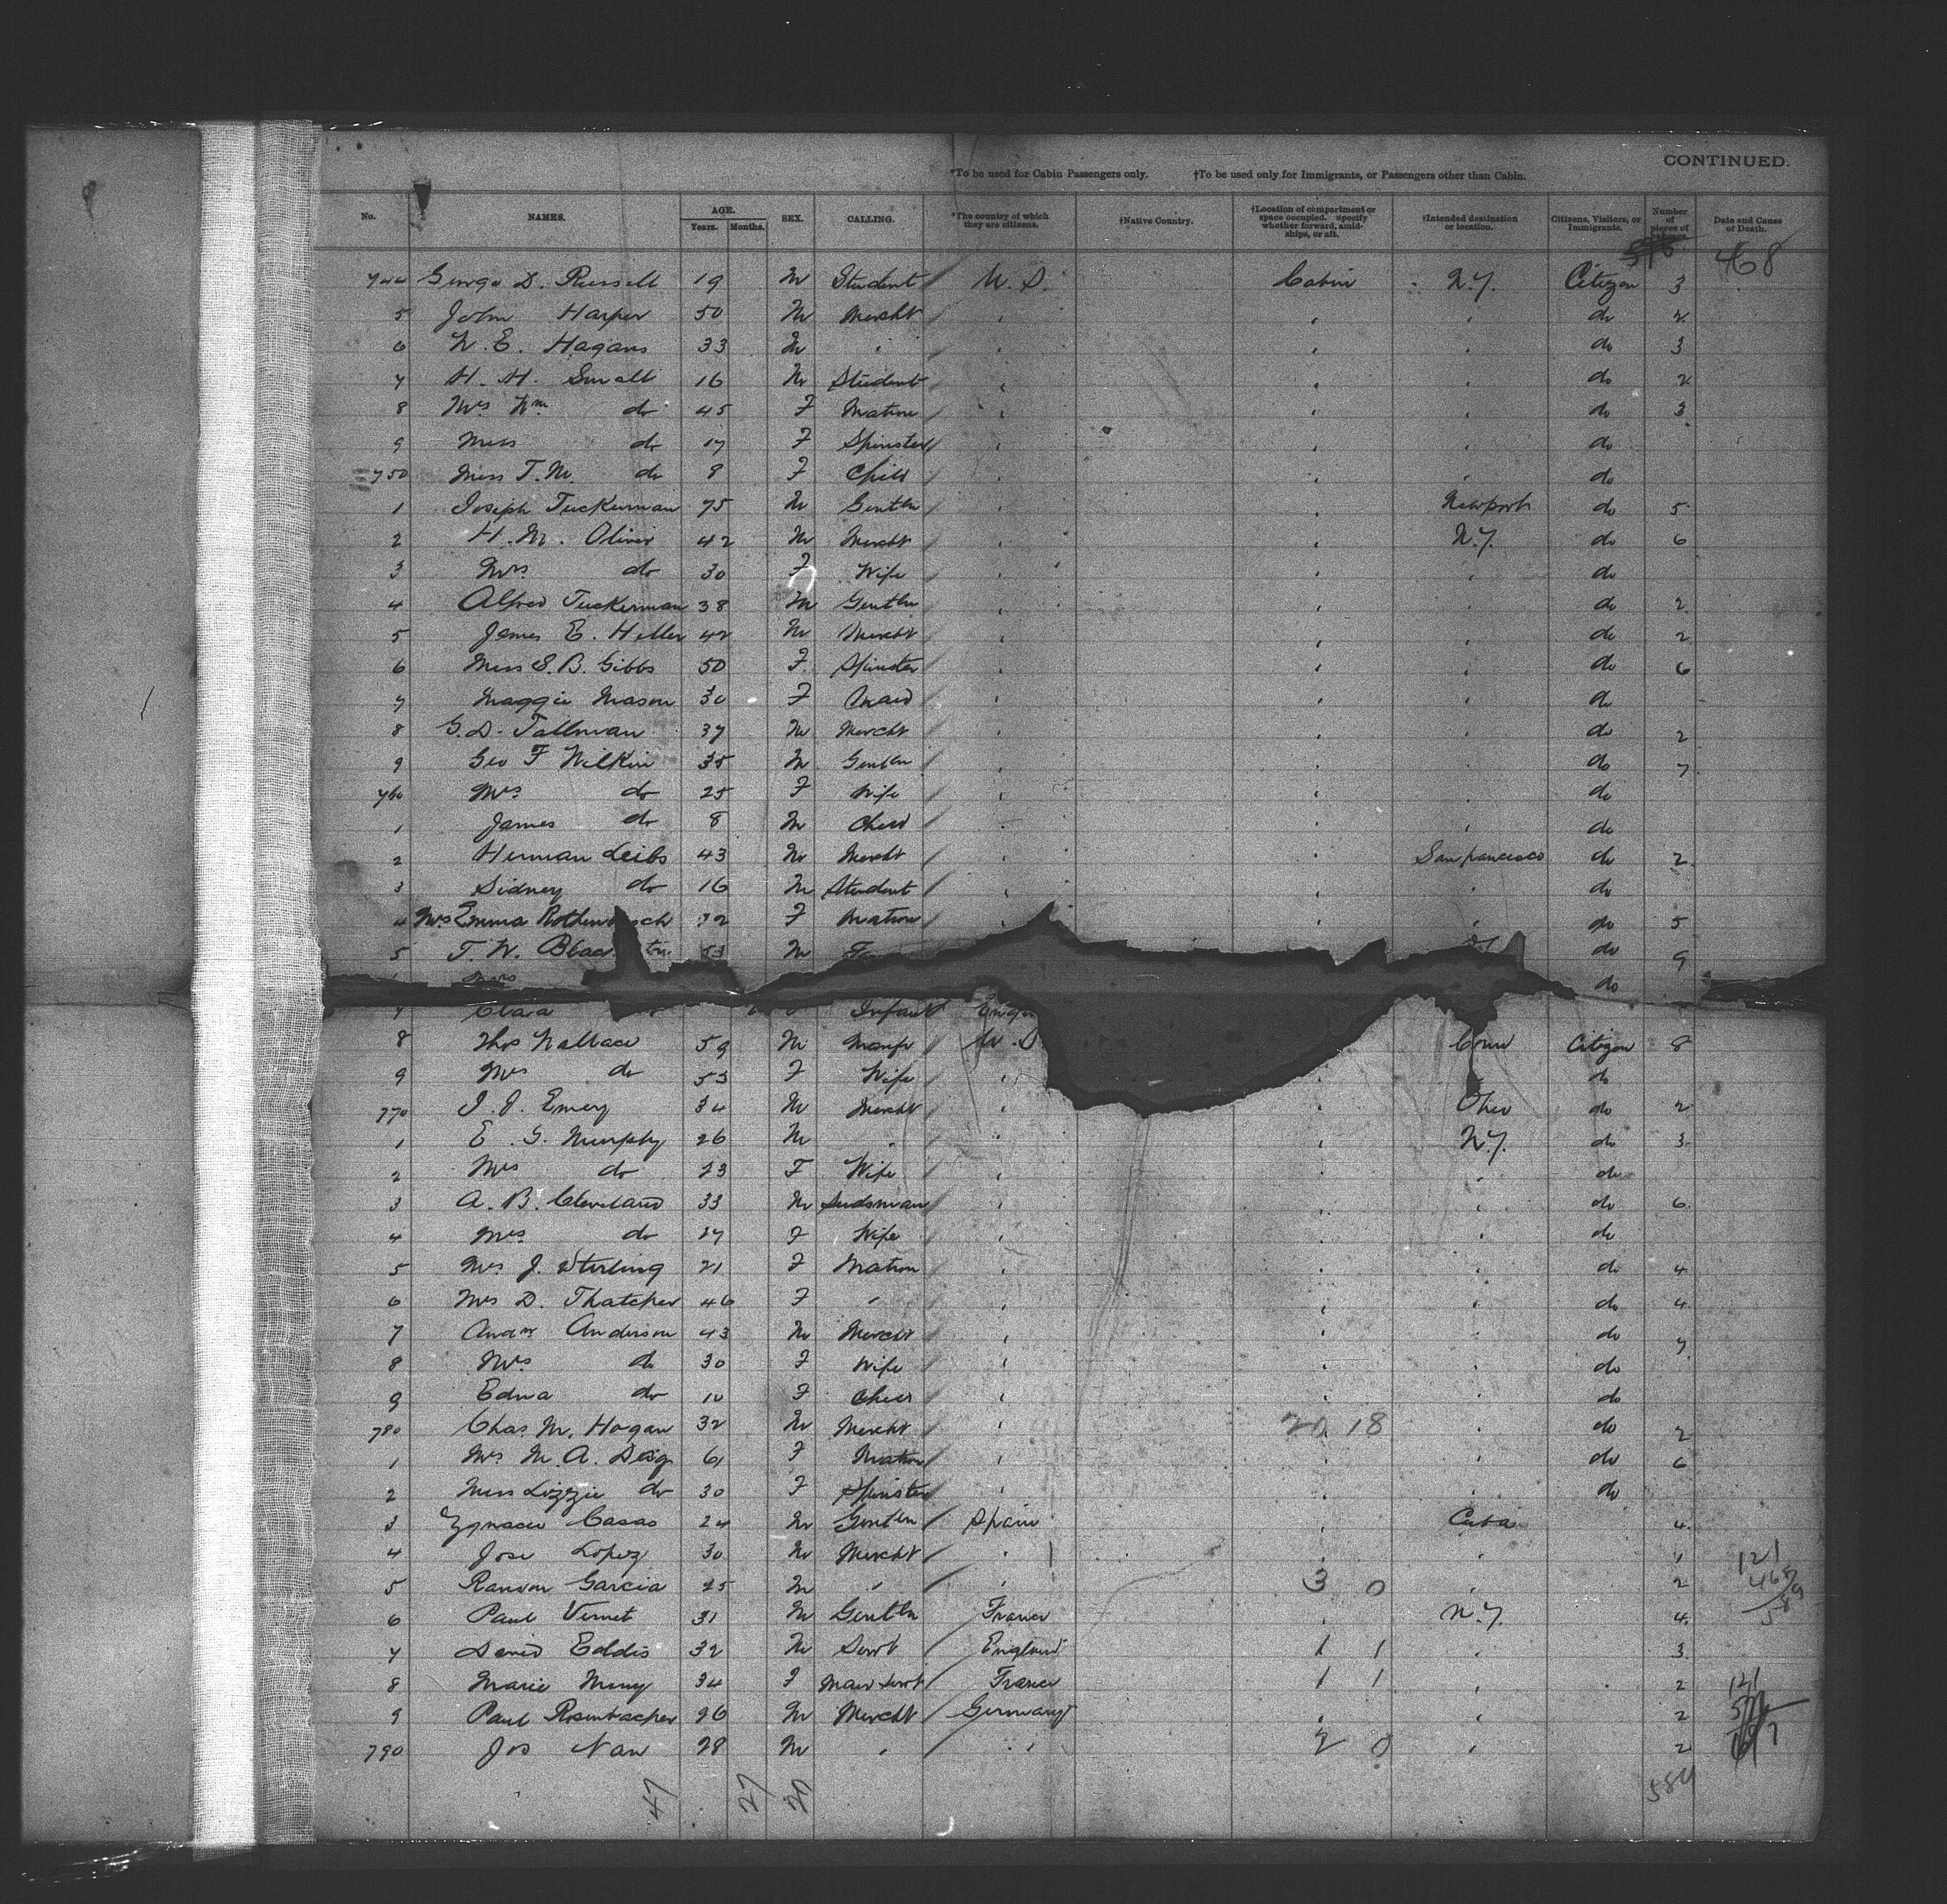 CONTINUED.
*To be used for Cabin Passengers only. †To be used only for Immigrants, or Passengers other than Cabin.
No. NAMES. AGE. Years. Months. SEX. CALLING. *The country of which they are citizens. †Native Country. †Location of compartment or space occupied. Specify whether forward, amidships, or aft. †Intended destination or location. Citizens, Visitors, or Immigrants. Number of pieces of Date and Cause of Death.
468
744 George D. Russell 19 M Student U.S. Cabin N.Y. Citizen 3
5 John Harper 50 M Mercht " " " do 2
6 W. E. Hagans 33 M " " " " do 3
7 H. H. Small 16 M Student " " " do 2
8 Mrs Wm do 45 F Matron " " " do 3
9 Miss do 17 F Spinster " " " do
750 Miss T. M. do 8 F Child " " " do
1 Joseph Tuckerman 75 M Gentln " " Newport do 5
2 H. M. Oliver 42 M Mercht " " N.Y. do 6
3 Mrs do 30 F Wife " " " do
4 Alfred Tuckerman 38 M Gentln " " " do 2
5 James E. Heller 42 M Mercht " " " do 2
6 Miss S. B. Gibbs 50 F Spinster " " " do 6
7 Maggie Mason 30 F Maid " " " do
8 G. D. Tallman 37 M Mercht " " " do 2
9 Geo F Wilkin 35 M Gentln " " " do 7
760 Mrs do 25 F Wife " " " do
1 James do 8 M Child " " " do
2 Herman Leibs 43 M Mercht " " San francisco do 2
3 Sidney do 16 M Student " " " do
4 Mrs Emma 32 F Matron " " " do 5
5 T. W. M do 9
Mrs do
7 Clara Infant
8 Thos Wallace 59 M Manfr U.S Conn Citizen 8
9 Mrs do 53 F Wife " " do
770 J. J. Emery 34 M Mercht " " Ohio do 2
1 E. G. Murphy 26 M " " " N.Y. do 3
2 Mrs do 23 F Wife " " " do
3 A. B. Cleveland 33 M Seedsman " " " do 6
4 Mrs do 27 F Wife " " " do
5 Mrs J. Sterling 21 F Matron " " " do 4
6 Mrs D. Thatcher 46 F " " " " do 4
7 Andw Anderson 43 M Mercht " " " do 7
8 Mrs do 30 F Wife " " " do
9 Edna do 10 F Child " " " do
780 Chas M. Hogan 32 M Mercht " 20 18 " do 2
1 Mrs M. A. 61 F Matron " " " do 6
2 Miss Lizzie do 30 F Spinster " " " do
3 Ygnacio Casas 24 M Gentln Spain " Cuba 4
4 Jose Lopez 30 M Mercht " " " 1 121
5 Ramon Garcia 25 M " " 3 0 " 2 468
6 Paul Vernet 31 M Gentln France " N.Y. 4 589
7 David Eddis 32 M Servt England 1 1 " 3
8 Marie 34 F Maid Servt France 1 1 " 2 121
9 Paul Rosenbacher 26 M Mercht Germany " " 2
790 Jos Nan 28 M " " 2 0 " 2
47 27 20 584